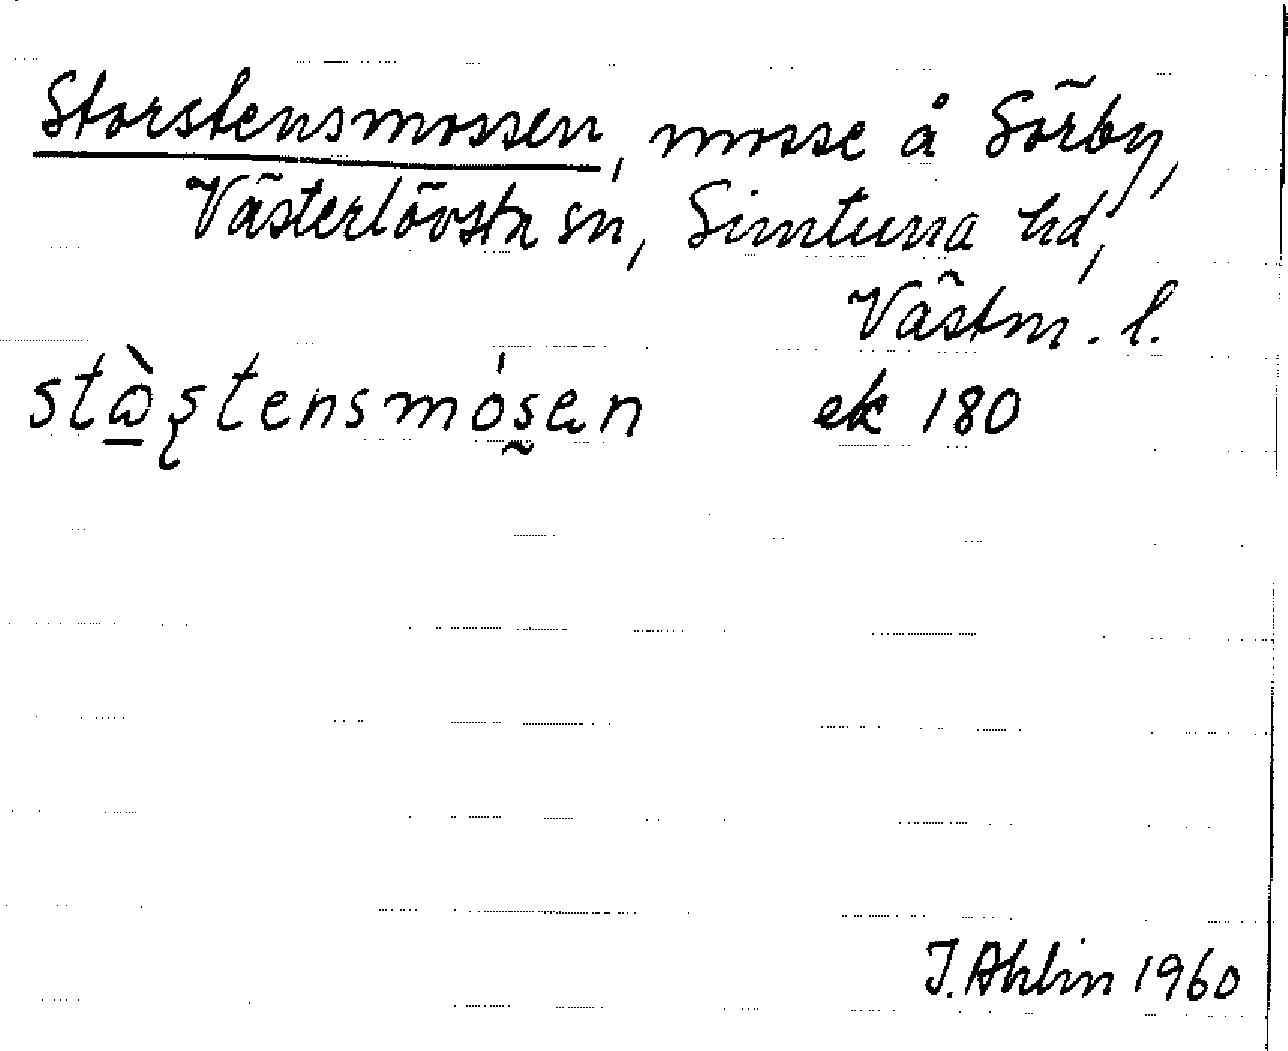 Storstensmossen, mosse å Sörby,
Västerlövsta sn, Simtuna hd,
Västm. l.
stⱥ̀ʂtensmósen ek 180
J. Ahlin 1960